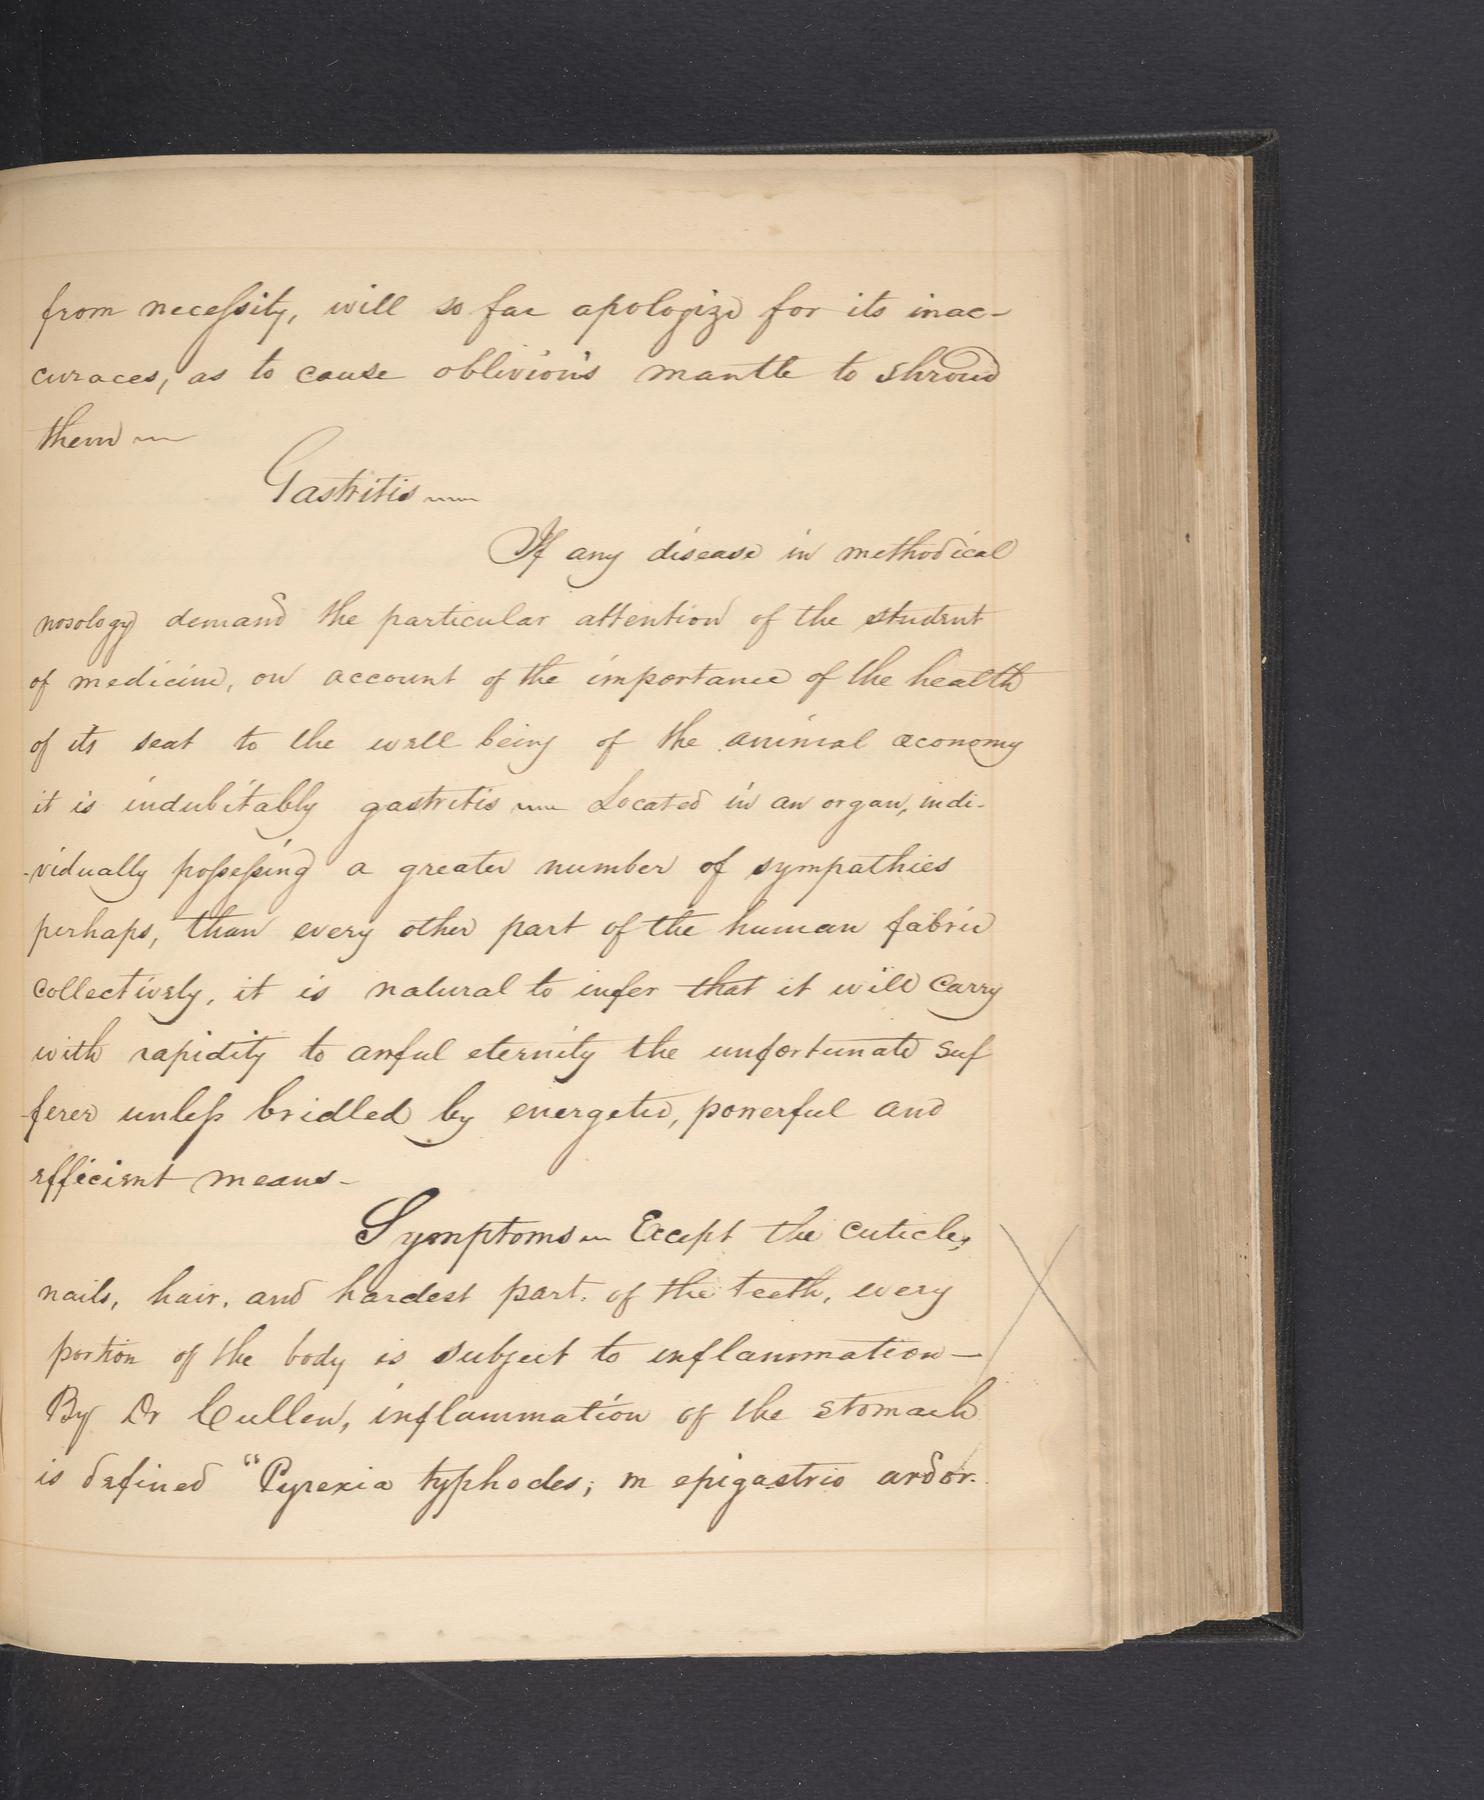 from necessity, will so far apologize for its inac-
curaces, as to cause oblivion's mantle to shroud
them
Gastritis
If any disease in methodical
nosology demand the particular attention of the student
of medicine, on account of the importance of the health
of its seat to the well being of the animal œconomy
it is indubitably gastritis Located in an organ, indi-
-vidually possessing a greater number of sympathies
perhaps, than every other part of the human fabric
collectively, it is natural to infer that it will carry
with rapidity to awful eternity the unfortunate suf
-ferer unless bridled by energetic, powerful and
efficient means-
Symptoms Except the cuticle,
nails, hair, and hardest part. of the teeth, every
portion of the body is subject to inflammation-
By Dr Cullen, inflammation of the stomach
is defined "Pyrexia typhodes; in epigastrio ardor.